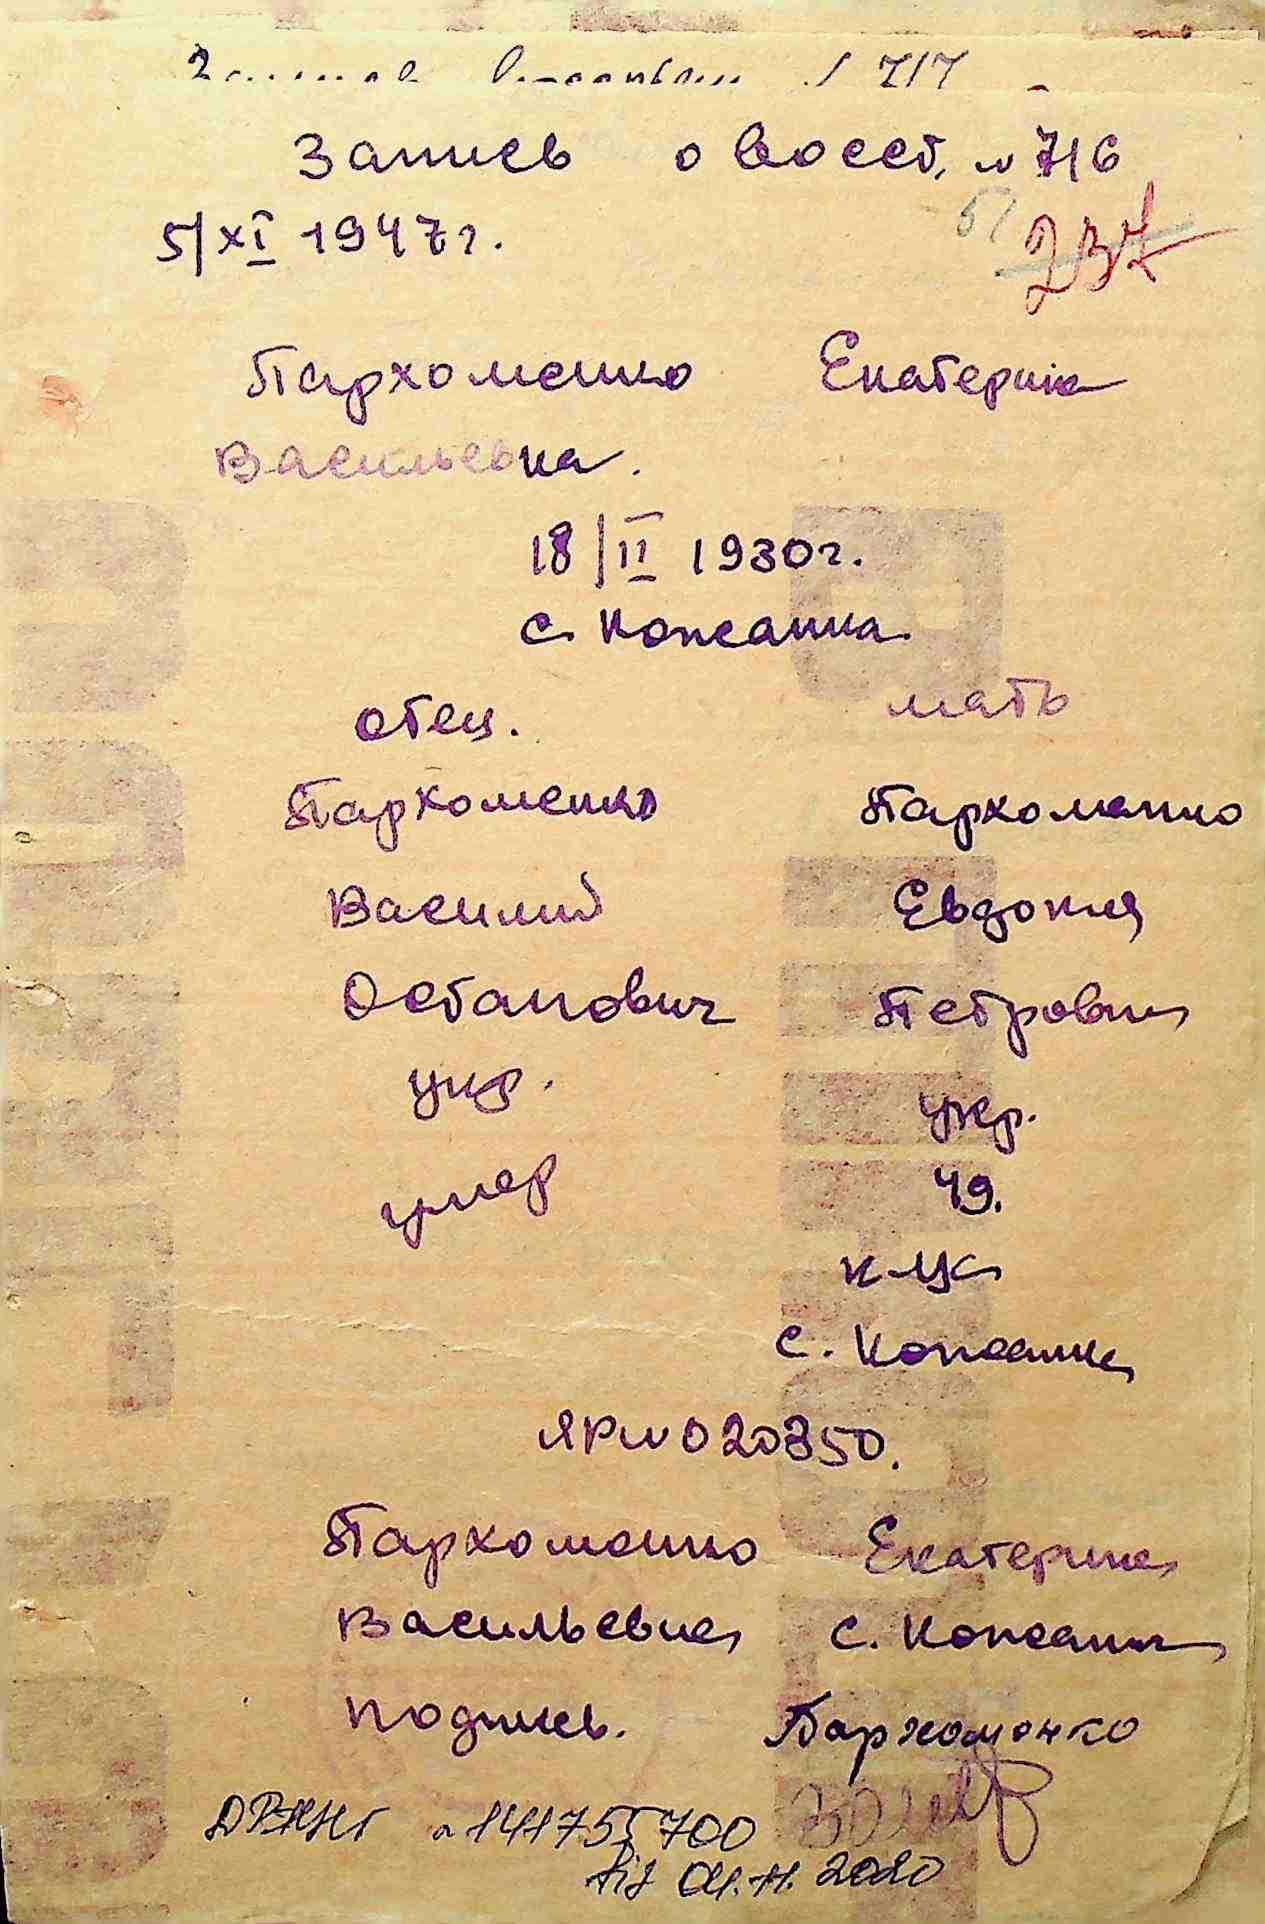 717
Запись о восст. № 716
5/XI 1947 г.
5/ 237
Пархоменко Екатерина
Васильевна.
18/II 1930 г.
с. Кожанка.
отец. мать
Пархоменко Пархоменко
Василий Евдокия
Остапович Петровна
укр. укр.
умер 49.
с. Кожанка
ЯР № 020350.
Пархоменко Екатерина
Васильевна с. Кожанка
подпись. Пархоменко
141755700
від 04.11.2020